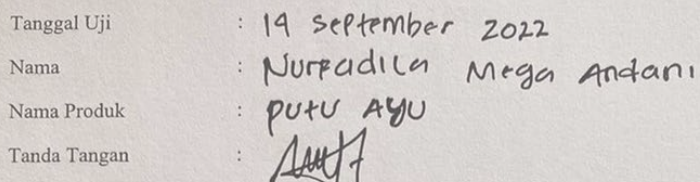 Tanggal Uji : 19 September 2022
Nama : Nurfadila Mega Andani
Nama Produk : PUTU AYU
Tanda Tangan :